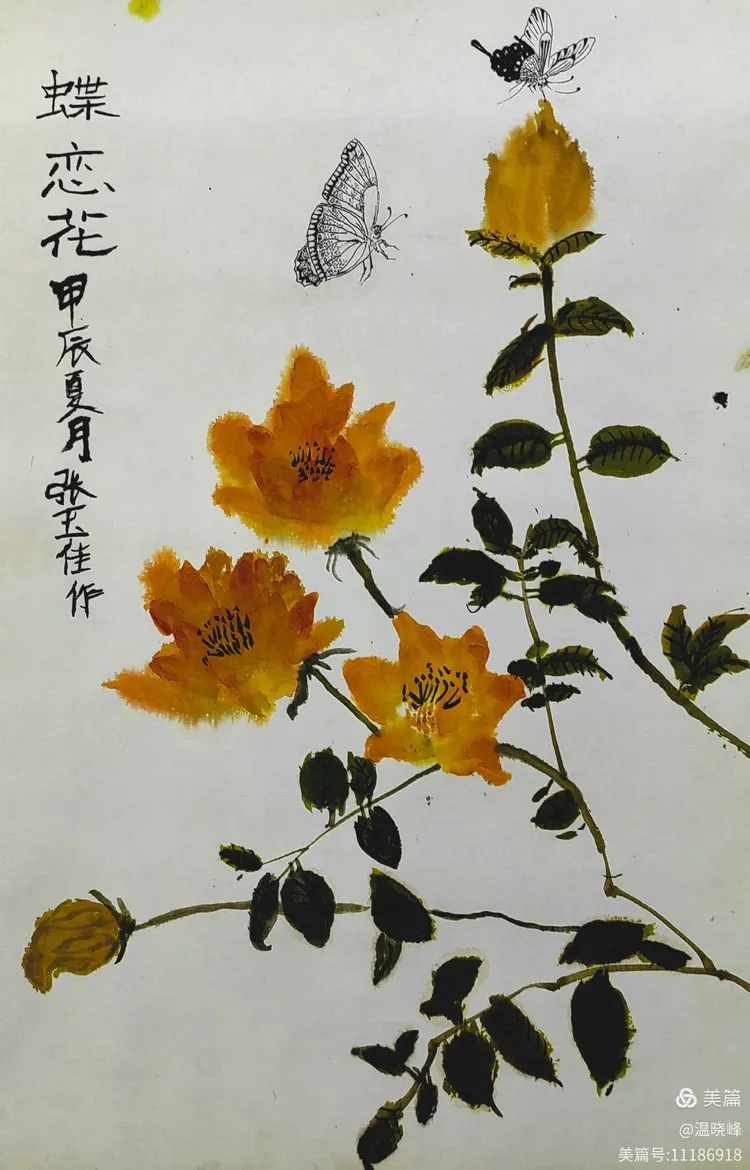 蝶恋花
甲辰夏月张玉佳作
美篇
@温晓峰
美篇号:11186918